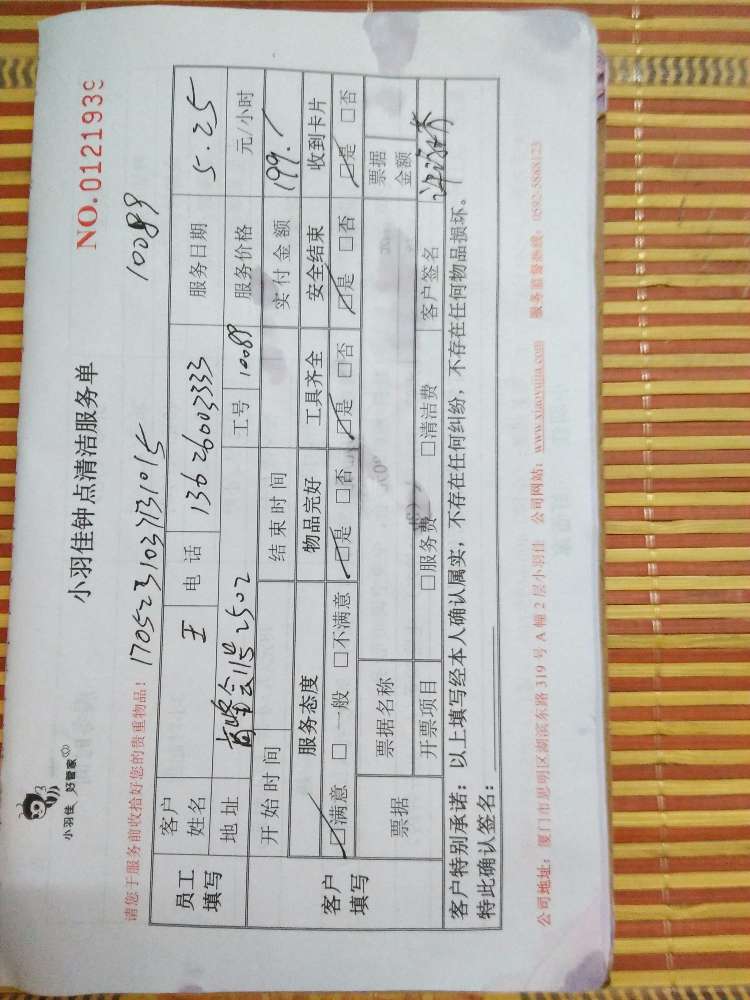 小羽佳 好管家
小羽佳钟点清洁服务单
NO.0121939
请您于服务前收拾好您的贵重物品!
170523103731015
10089
员工填写
客户姓名 王 电话 13626003333 服务日期 5.25
地址 高峰会11号2502 工号 10089 服务价格 元/小时
客户填写
开始时间 结束时间 实付金额 199.
服务态度 物品完好 工具齐全 安全结束 收到卡片
☑满意 □一般 □不满意 ☑是 □否 ☑是 □否 ☑是 □否 ☑是 □否
票据 票据名称 票据金额
开票项目 □服务费 □清洁费 客户签名
客户特别承诺:以上填写经本人确认属实,不存在任何纠纷,不存在任何物品损坏。
特此确认签名:
公司地址:厦门市思明区湖滨东路 319 号 A 幢 2 层小羽佳 公司网站:www.xiaoyujia.com 服务监督热线:0592-8868123